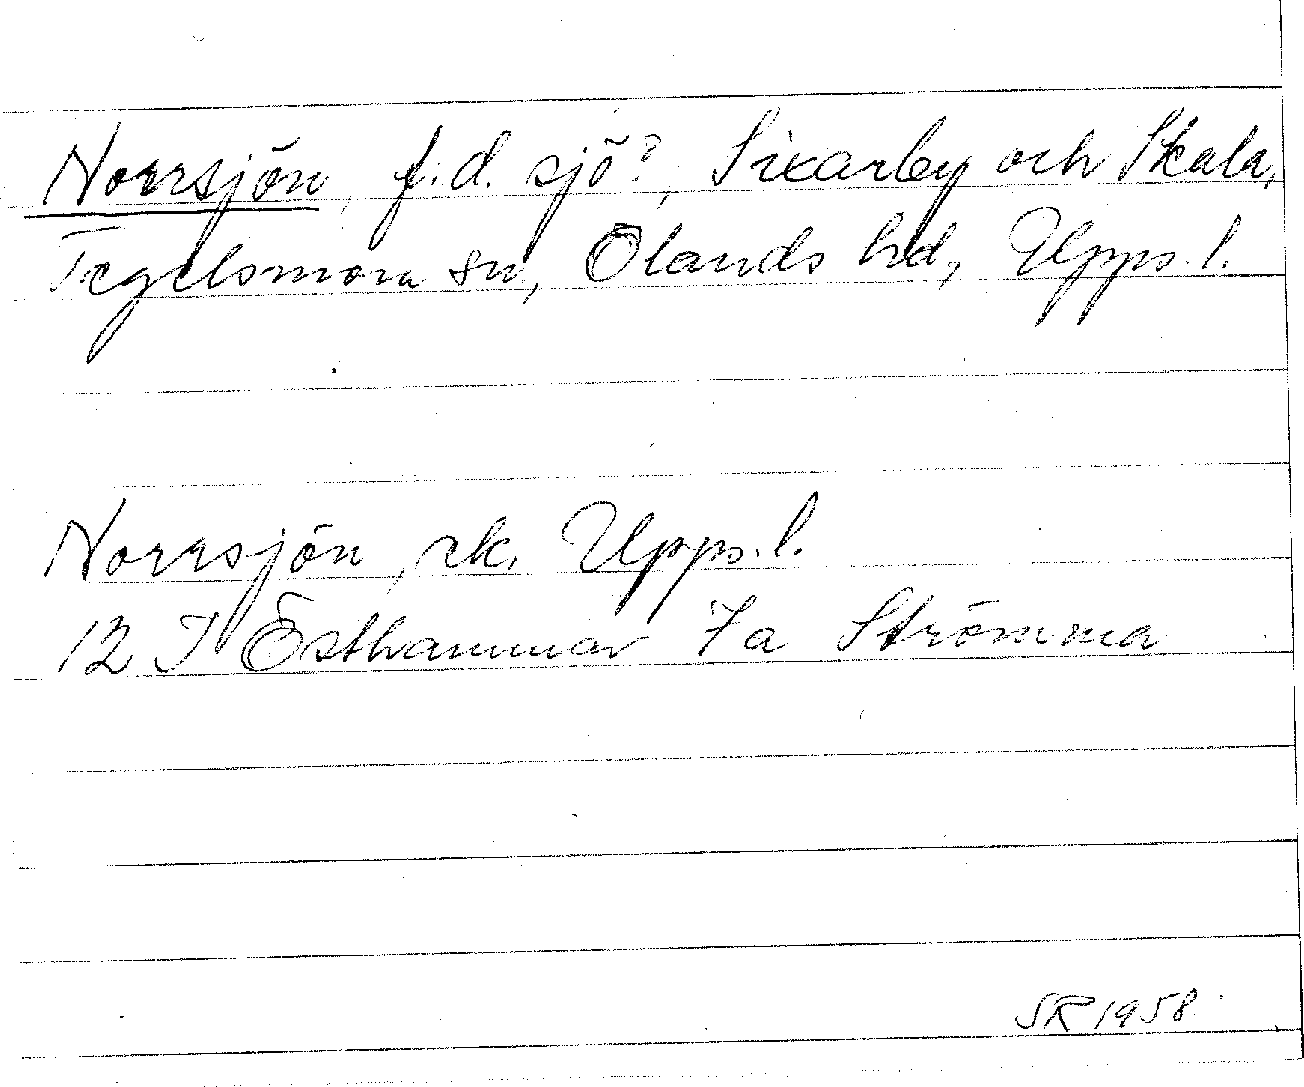 Norrsjön, f.d. sjö?, Sixarby och Skala,
Tegelsmora sn, Olands hd, Upps. l.
Norrsjön, ek. Upps. l.
12 I Östhammar 7a Strömma
SR 1958